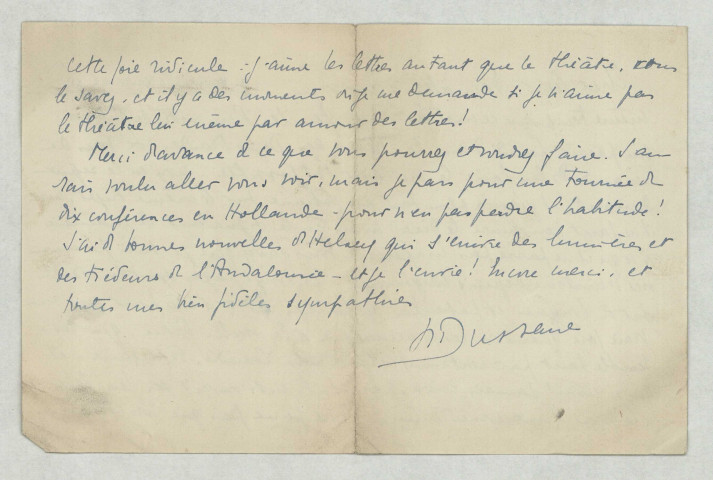 cette fois ridicule : j'aime les lettres autant que le théâtre, vous
le savez, et il y a des moments où je me demande si je n'aime pas
le théâtre lui même par amour des lettres !
Merci d'avance de ce que vous pourrez et voudrez faire. J'au
rais voulu aller vous voir, mais je pars pour une tournée de
dix conférences en Hollande - pour n'en pas perdre l'habitude !
J'ai de bonnes nouvelles d'Helsey qui s'enivre des lumières et
des tiédeurs de l'Andalousie - et je l'envie ! Encore merci, et
toutes mes bien fidèles sympathies
Dussane